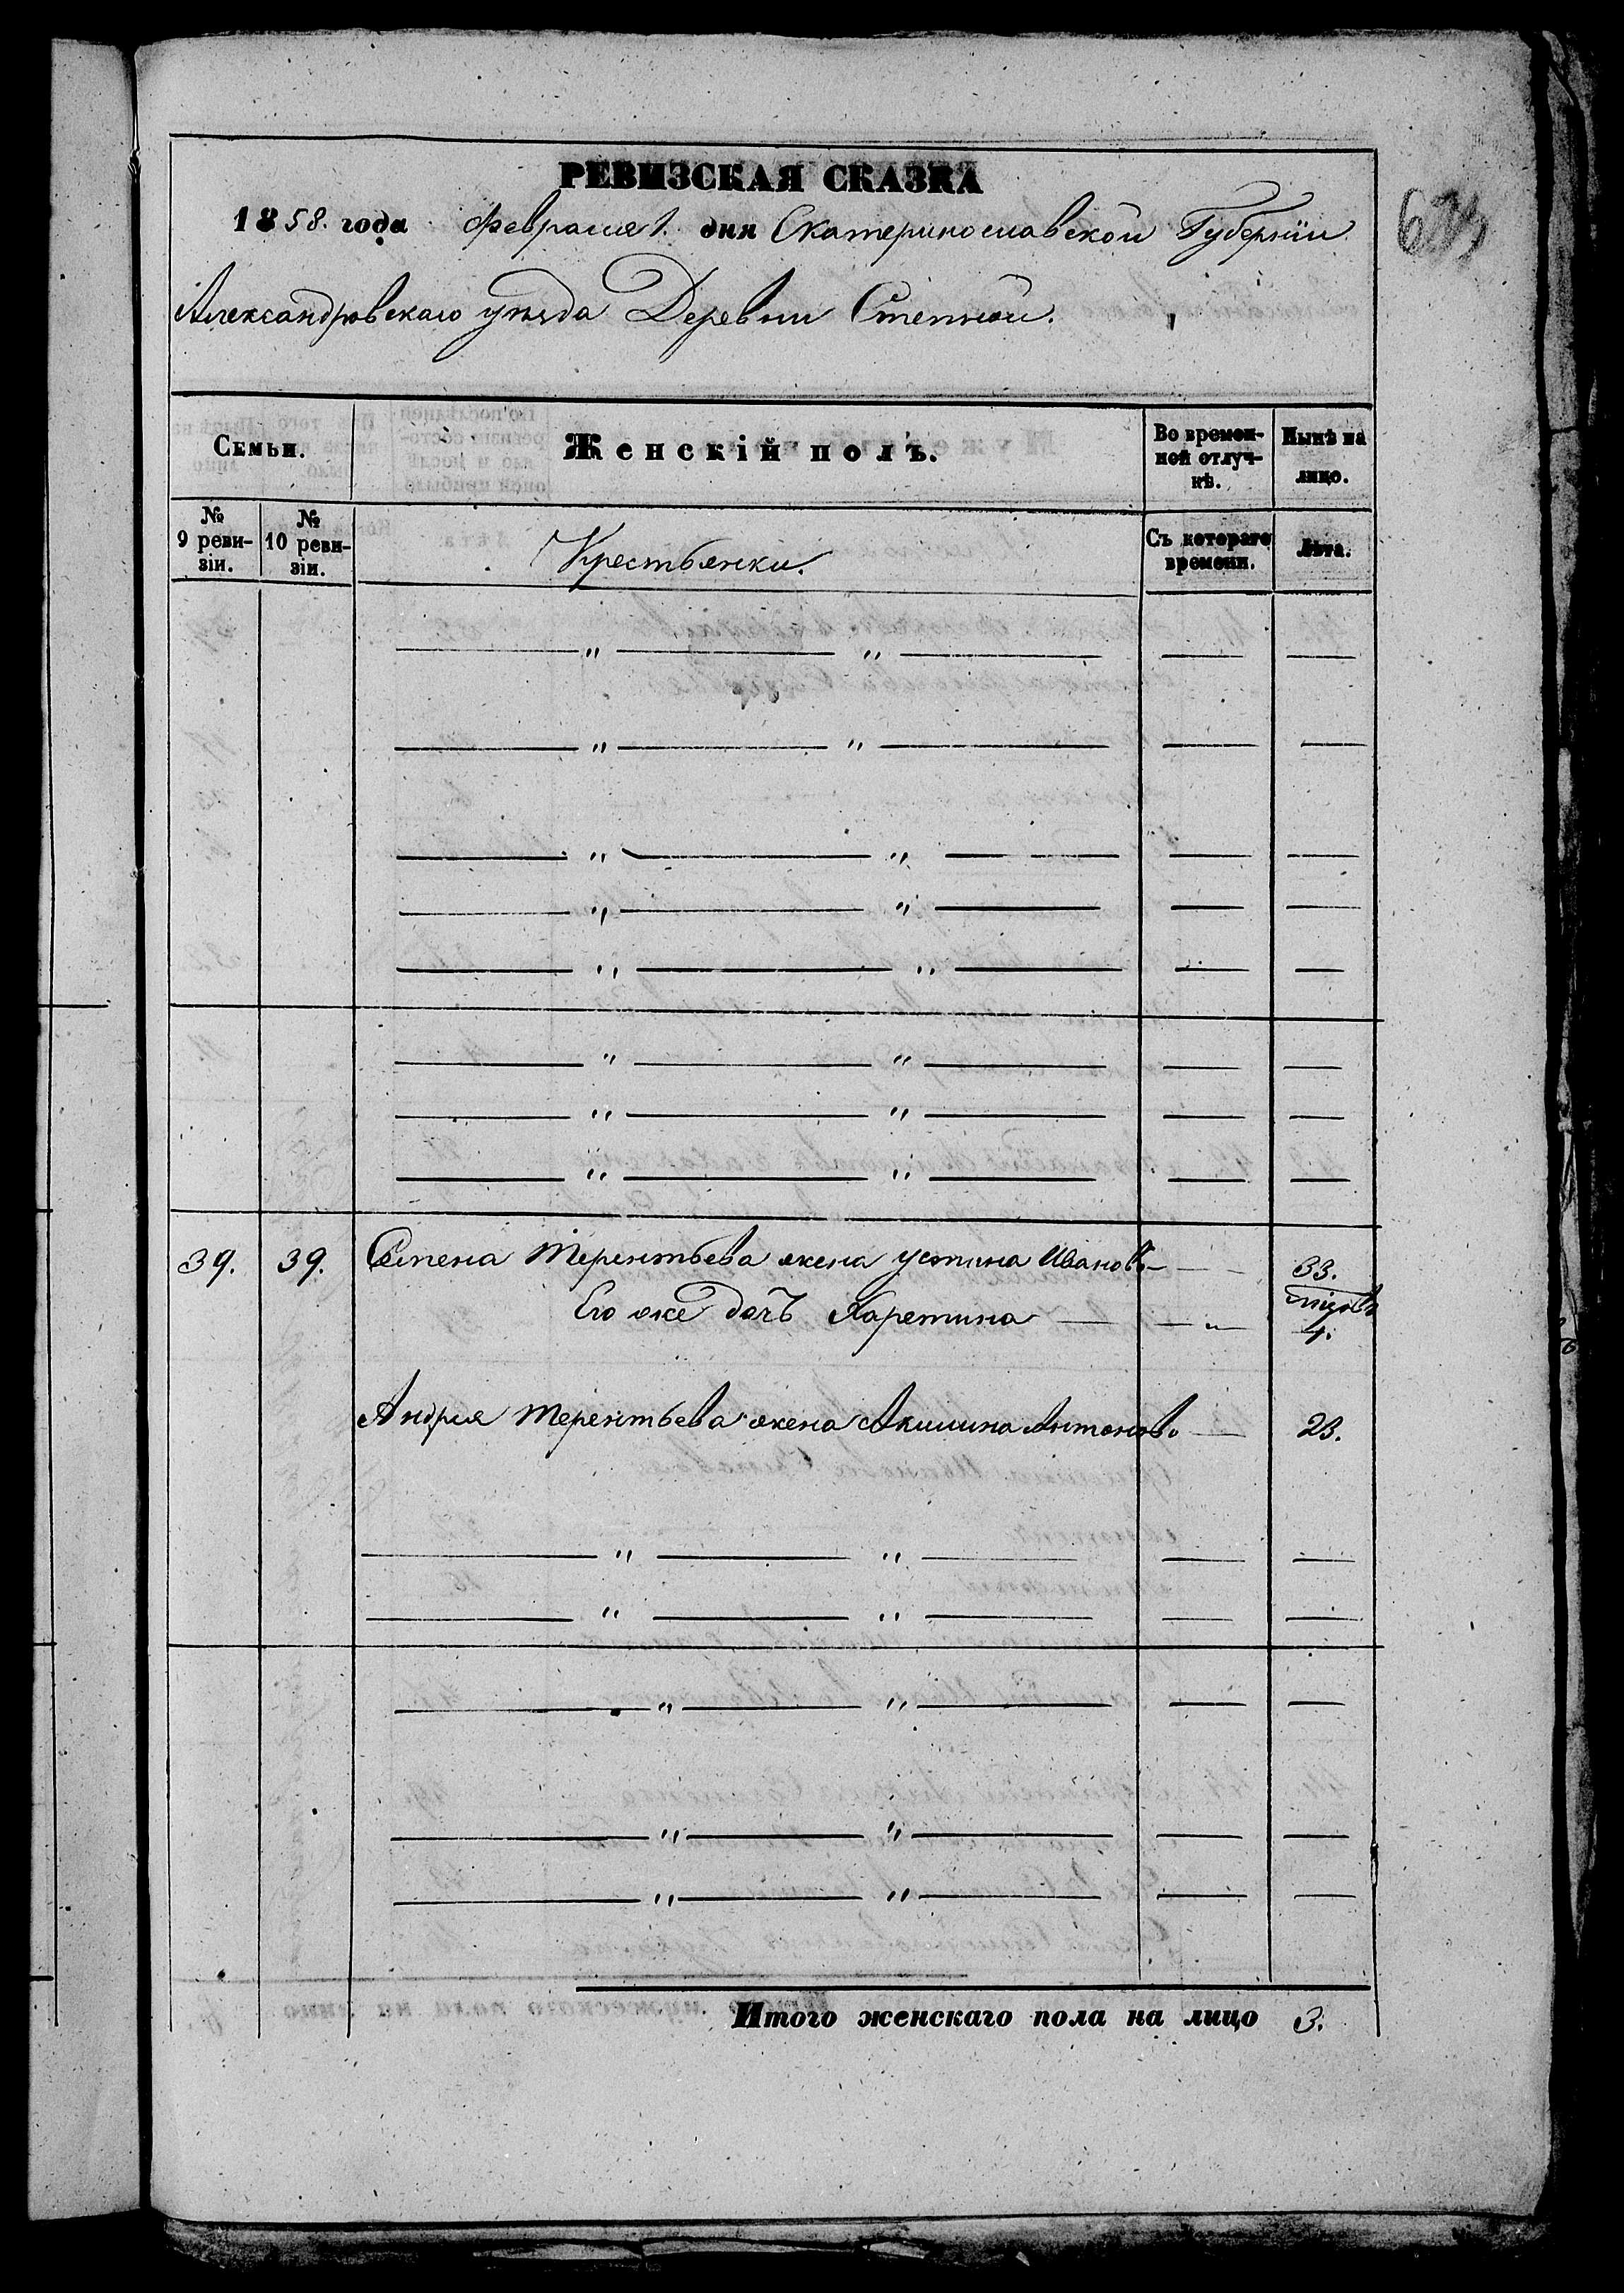 РЕВИЗСКАЯ СКАЗКА
1858. года Февраля 1. дня Екатеринославской Губерніи
Александровскаго уѣзда Деревни Степной.
Семьи.
Женскій полъ.
Во времен-
ной отлуч-
кѣ.
Нынѣ на
лицо.
№
9 реви-
зіи.
№
10 реви-
зіи.
Крестьянки.
Съ котораго
времени.
Лѣта.
— " — " — — —
— " — " — — —
— " — " — — —
— " — " — — —
— " — " — — —
— " — " — — —
— " — " — — —
— " — " — — —
39. 39. Терентьева жена Устина Иванов. — — 33.
Его же дочь Харетина — — " — 4.
Андрея Терентьева жена Акилина Антонов. — 23.
— " — " — — —
— " — " — — —
— " — " — — —
— " — " — — —
— " — " — — —
Итого женскаго пола на лицо 3.